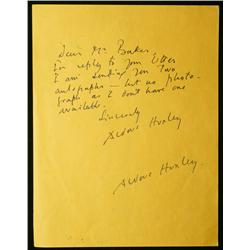 Dear Mr Baker,
In reply to your letter
I am sending you two
autographs – but no photo-
graph as I don't have one
available.
Sincerely
Aldous Huxley
Aldous Huxley.